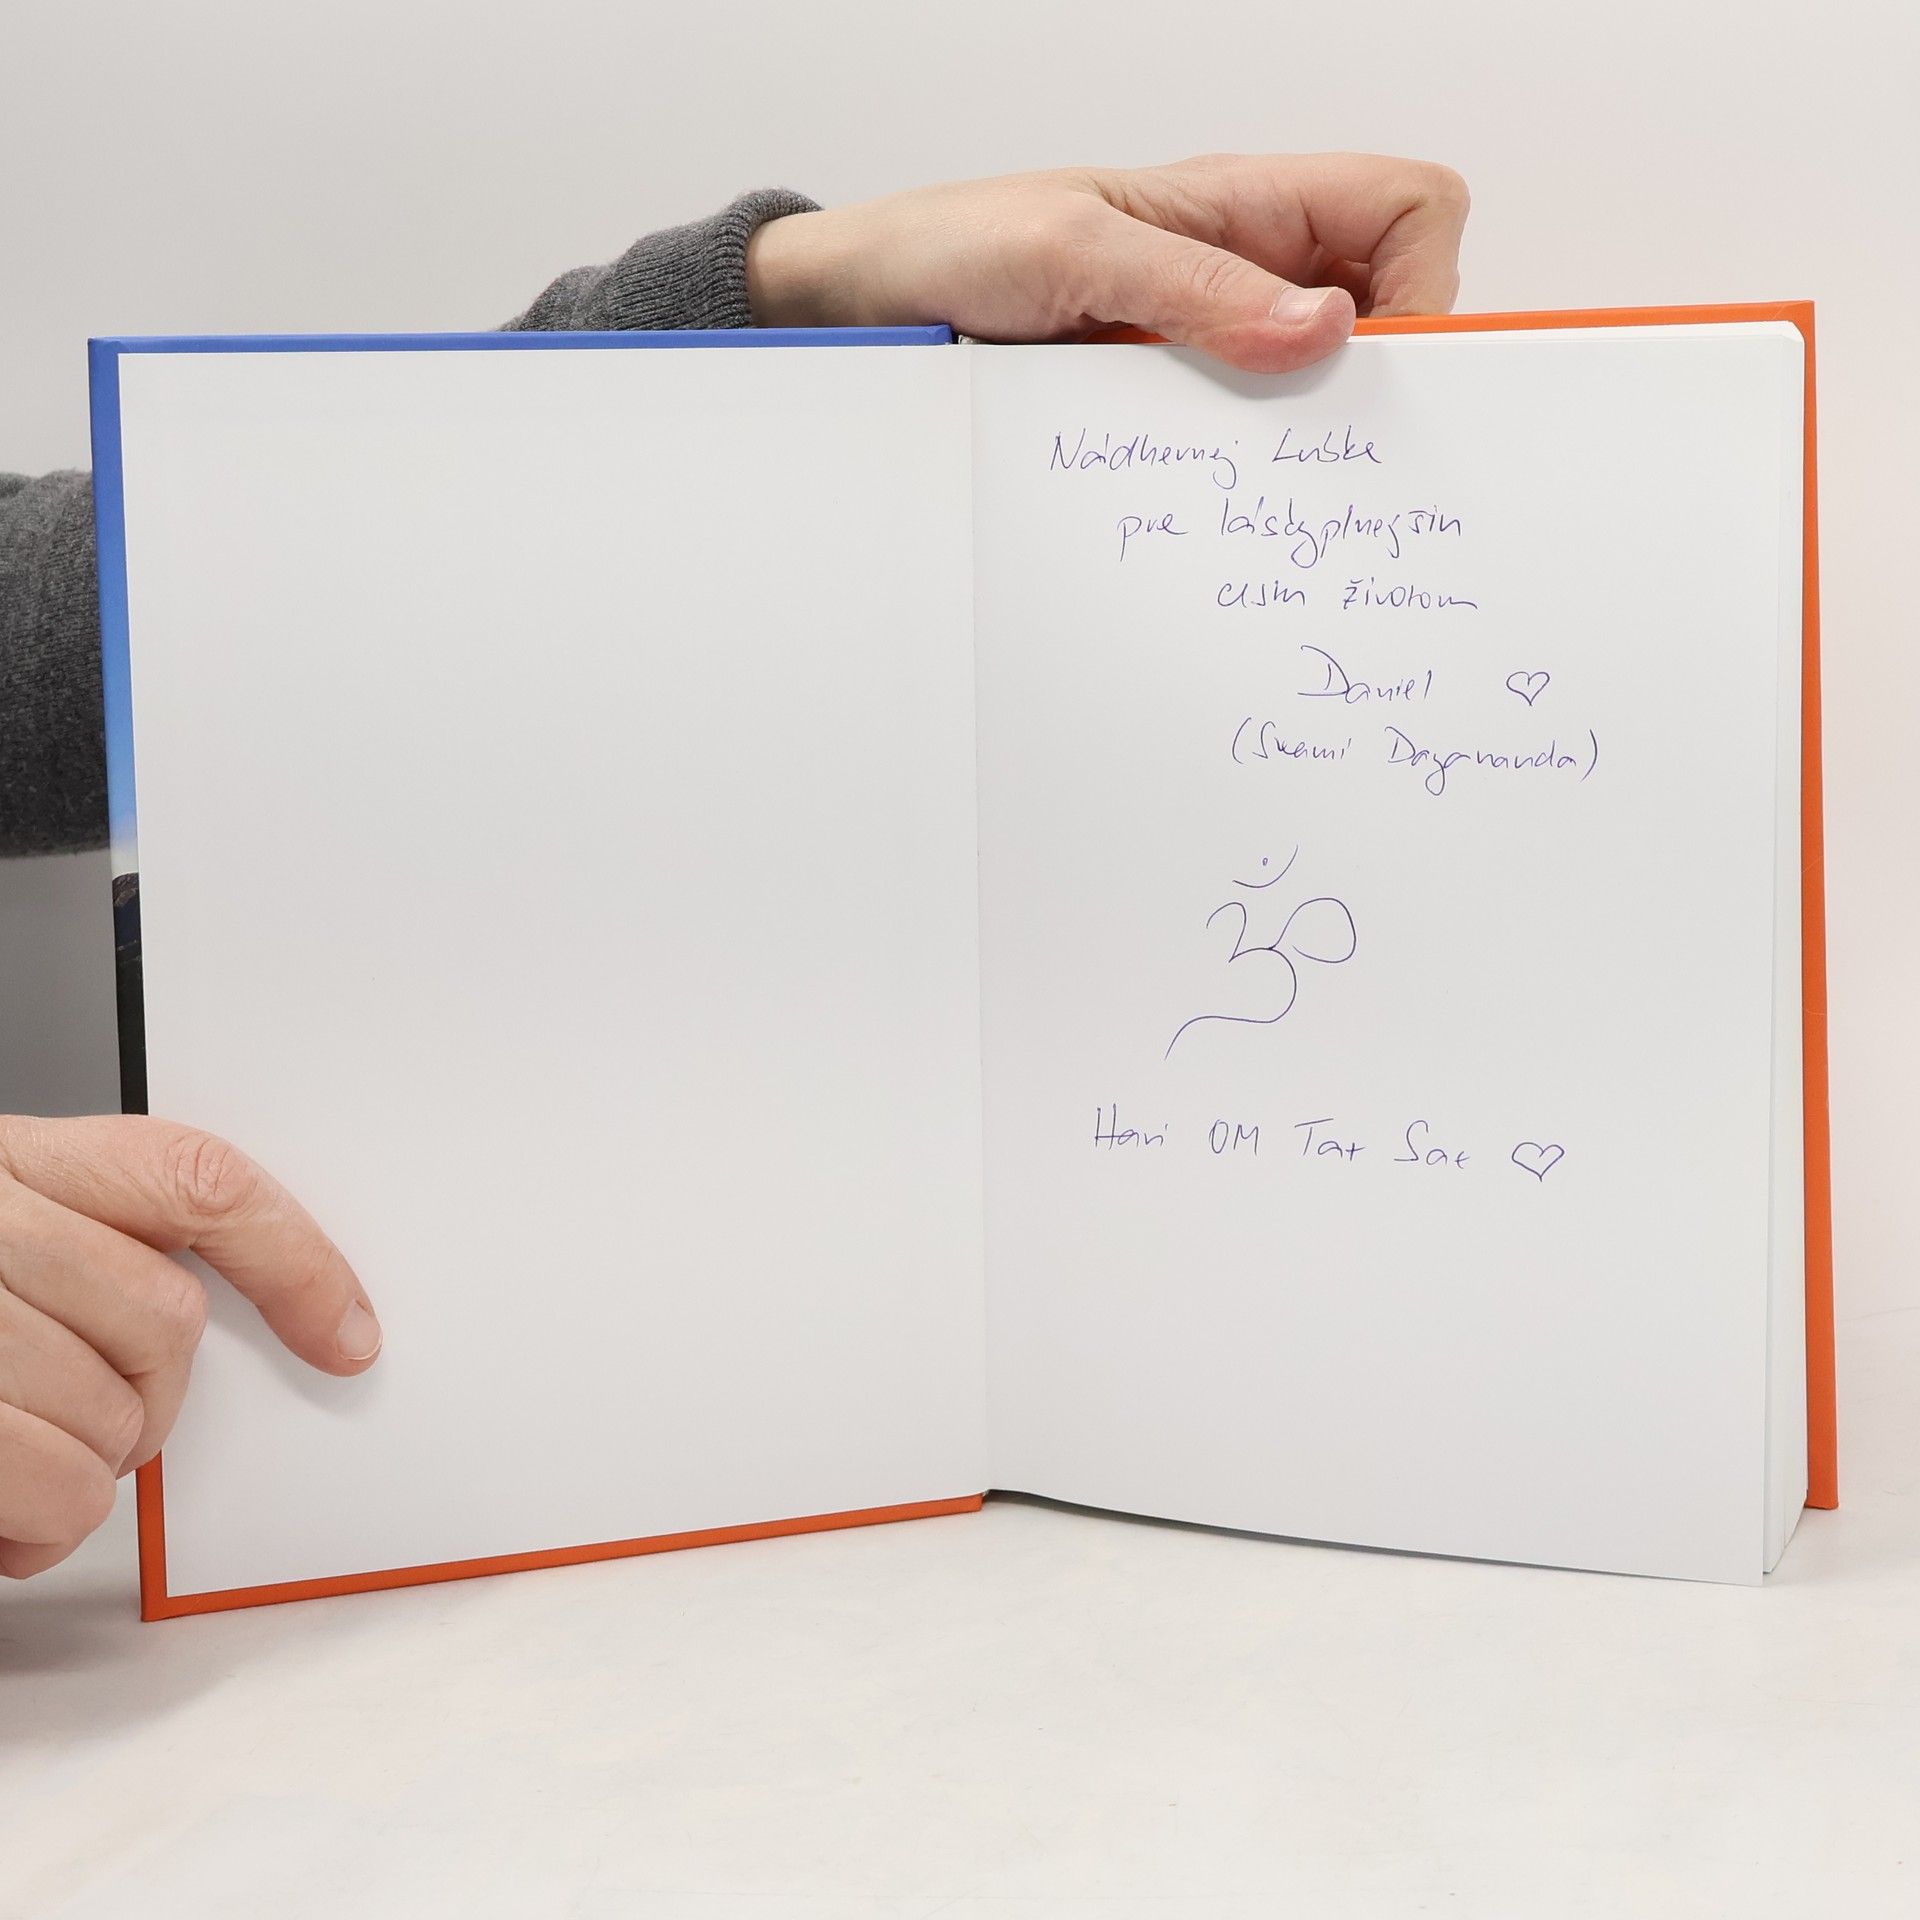 Nádhernej Luške
pre láskyplnejšín
životom
Daniel ♡
(Swami Dayananda)
ॐ
Hari OM Tat Sat ♡